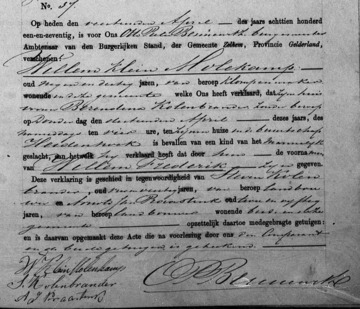 No. 37
Op heden den veertienden April des jaars achttien honderd
een-en-zeventig, is voor Ons
Ambtenaar van den Burgerlijken Stand, der Gemeente Zelhem, Provincie Gelderland,
verschenen:
Willem Klein Molekamp
oud negen en dertig jaren, van beroep
wonende in deze gemeente welke Ons heeft verklaard, dat zijn huis
vrouw Berendina Kolenbrander zonder beroep
op Donderdag den dertienden April dezes jaars, des
namiddags ten vier ure, ten zijnen huize in de buurtschap
Heidenhoek is bevallen van een kind van het mannelijk
geslacht, aan hetwelk hij verklaard heeft dat door hem de voornamen
van Willem Frederik is gegeven.
Deze verklaring is geschied in tegenwoordigheid van Steven Kolen
brander, oud jaren, van beroep landbou
wer en oud
jaren, van beroep landbouwer wonende beide in deze
gemeente opzettelijk daartoe medegebragte getuigen:
en is daarvan opgemaakt deze Acte die na voorlezing door ons den Comparant
en de beide getuigen is geteekend.
W. Klein Molenkamp
S. Kolenbrander